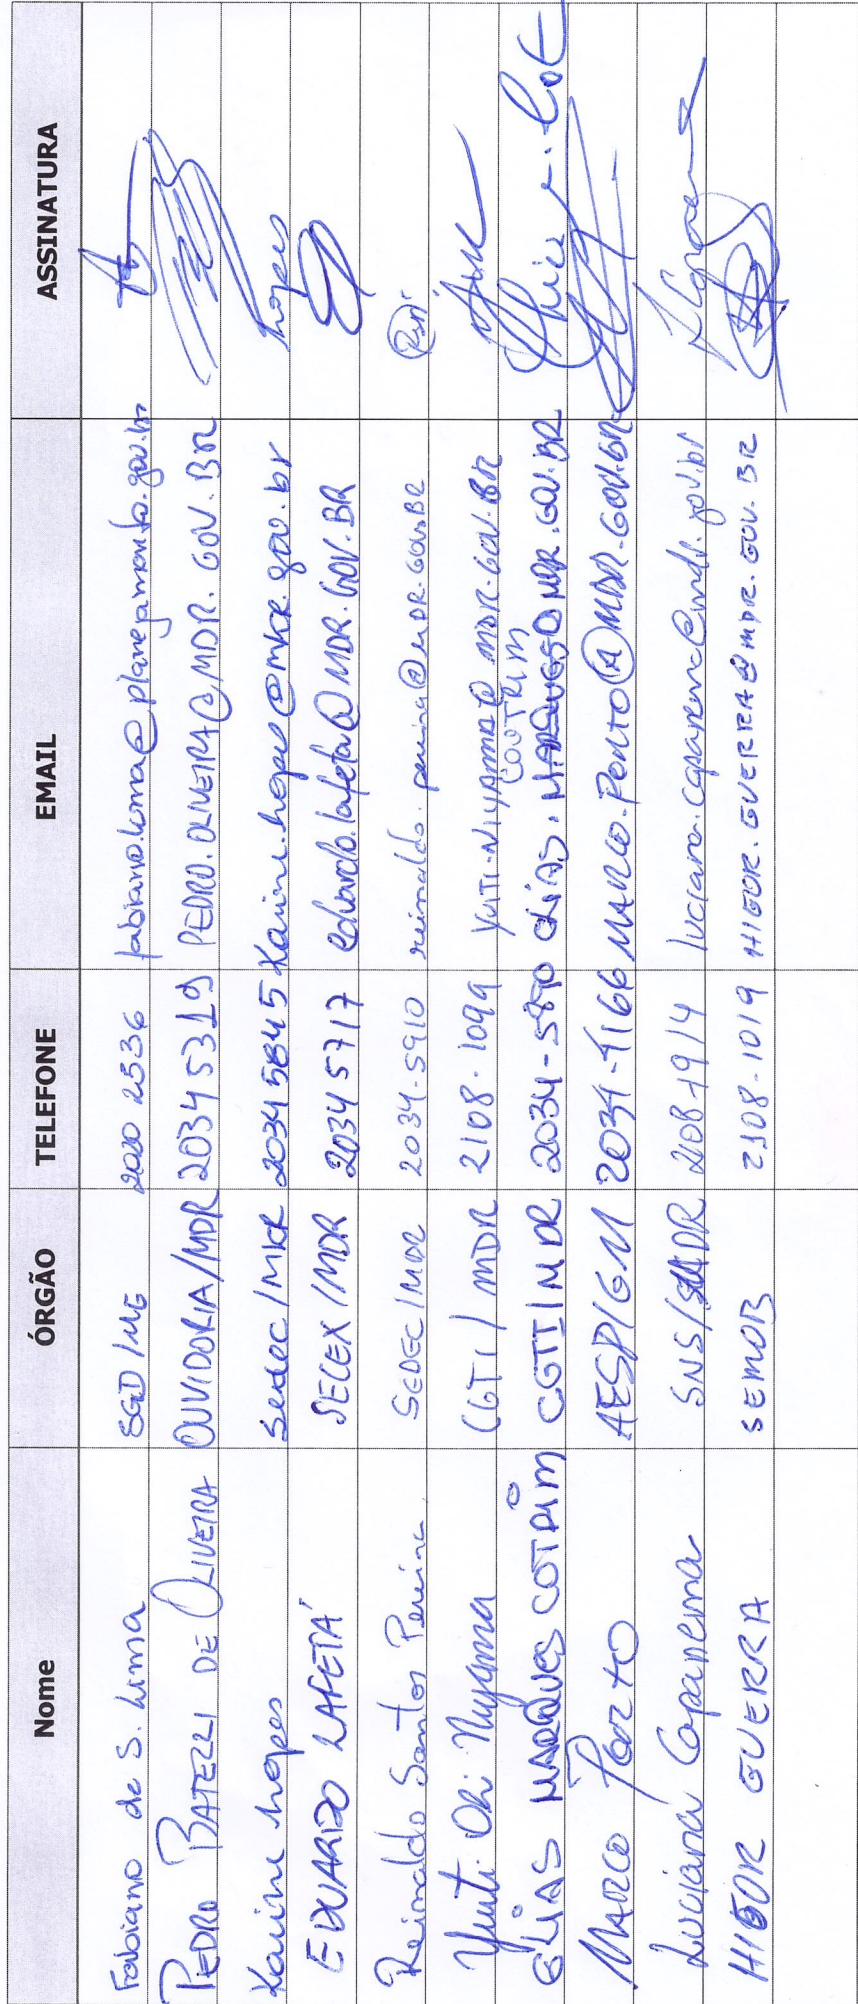 Nome ÓRGÃO TELEFONE EMAIL ASSINATURA
Fabiano de S. Lima SGD/ME 2020 2536 fabiano.lima@planejamento.gov.br
PEDRO BATELLI DE OLIVEIRA OUVIDORIA/MDR 2034 5319 PEDRO.OLIVEIRA@MDR.GOV.BR
Karine Lopes Sedec/MDR 2034 5845 Karine.lopes@mdr.gov.br Lopes
EDUARDO LAFETÁ SECEX/MDR 2034 5717 eduardo.lafeta@MDR.GOV.BR
Reinaldo Santos Pereira SEDEC/MDR 2034-5910 reinaldo.pereira@MDR.GOV.BR
Yuiti Niyama CGTI/MDR 2108-1099 YUITI.NIYAMA@MDR.GOV.BR
COUTRIM
ELIAS MARQUES COTRIM CGTI/MDR 2034-5870 ELIAS.MARQUES@MDR.GOV.BR
MARCO PORTO AESP/GM 2034-4166 MARCO.PORTO@MDR.GOV.BR
Luciana Capanema SNS/MDR 2108-1914 luciana.capanema@mdr.gov.br
HIGOR GUERRA SEMOB 2108-1019 HIGOR.GUERRA@MDR.GOV.BR